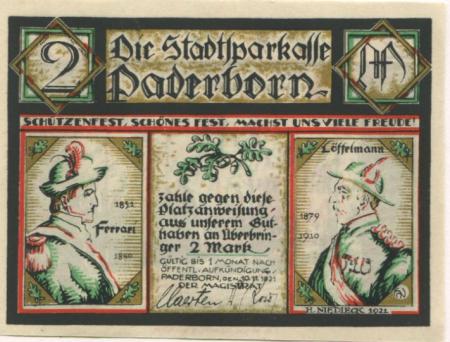 2
Die Stadtsparkasse
Paderborn
M
SCHÜTZENFEST, SCHÖNES FEST, MACHST UNS VIELE FREUDE!
1831
Ferrari
zahle gegen diese
Platzanweisung
aus unserem Gut-
haben an Überbrin-
ger 2 Mark
GÜLTIG BIS 1 MONAT NACH
ÖFFENTL. AUFKÜNDIGUNG.
PADERBORN, DEN 10.11.1921
DER MAGISTRAT
Löffelmann
1879
1910
H. NIEDIECK 1921